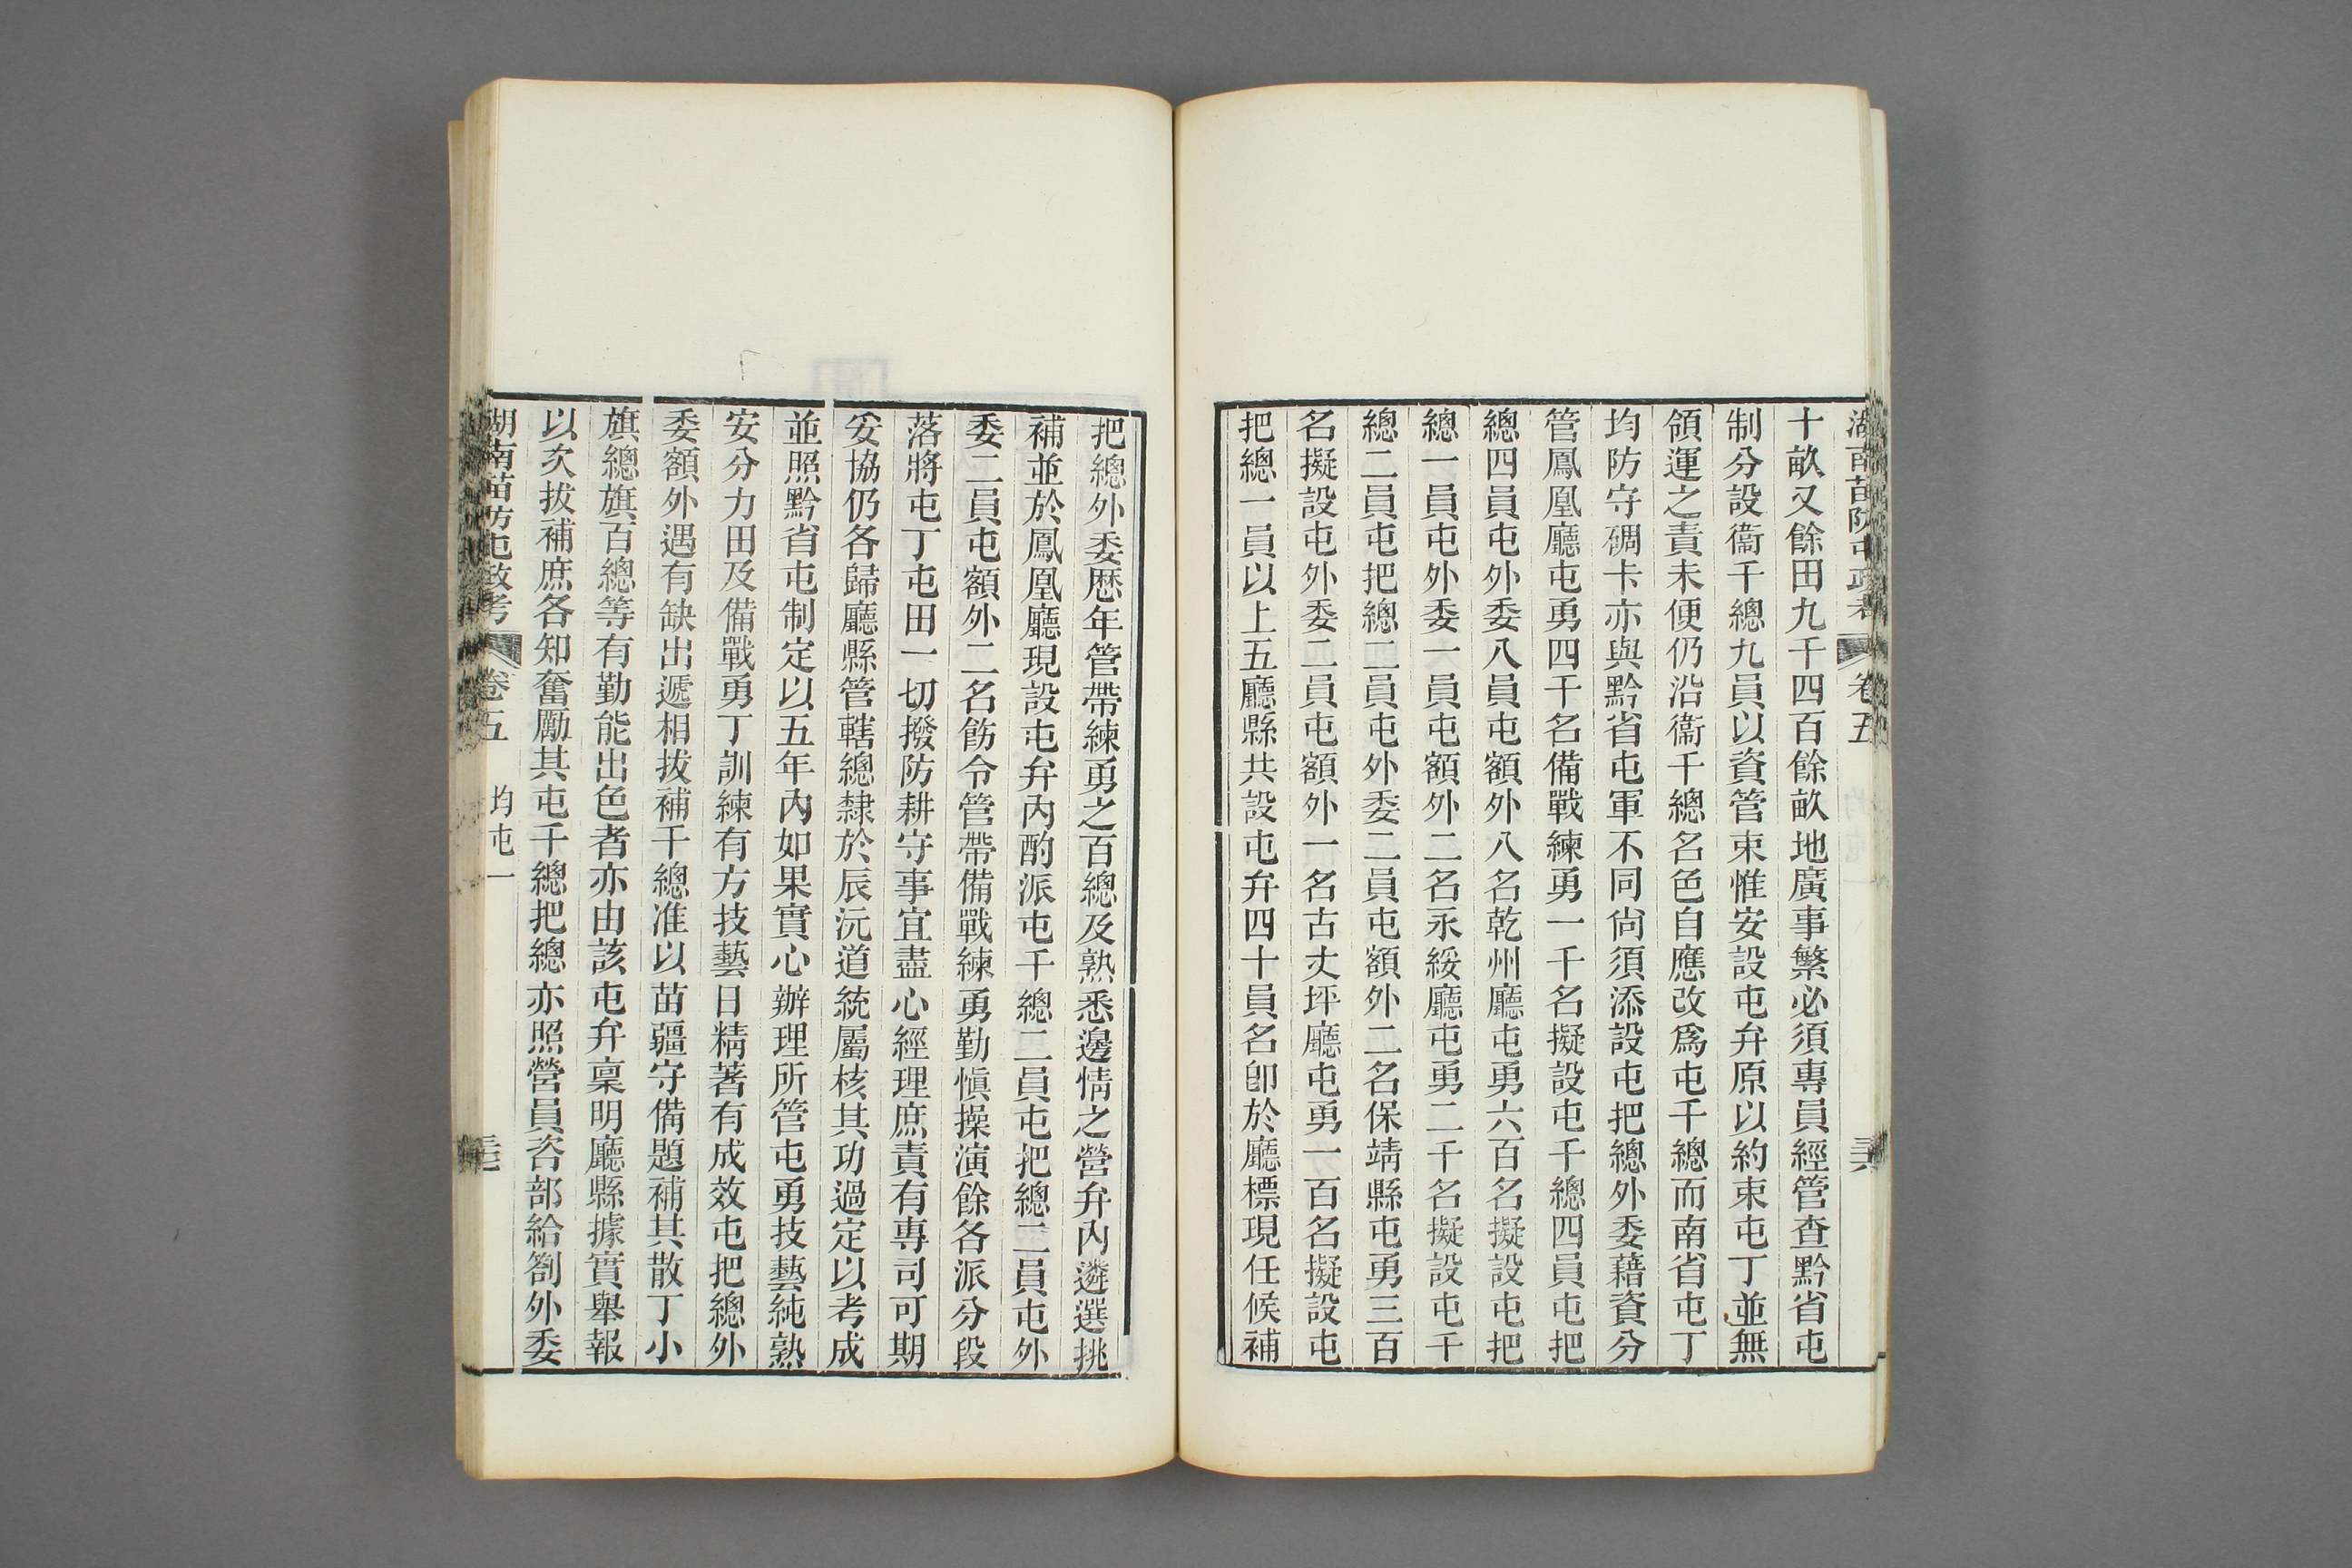 湖南苗防屯政考 卷五
十畝又餘田九千四百餘畝地廣事繁必須專員經管查黔省屯
制分設衞千總九員以資管束惟安設屯弁原以約束屯丁並無
領運之責未便仍沿衞千總名色自應改爲屯千總而南省屯丁
均防守碉卡亦與黔省屯軍不同尙須添設屯把總外委藉資分
管鳳凰廳屯勇四千名備戰練勇一千名擬設屯千總四員屯把
總四員屯外委八員屯額外八名乾州廳屯勇六百名擬設屯把
總一員屯外委一員屯額外二名永綏廳屯勇二千名擬設屯千
總二員屯把總二員屯外委二員屯額外二名保靖縣屯勇三百
名擬設屯外委二員屯額外一名古丈坪廳屯勇一百名擬設屯
把總一員以上五廳縣共設屯弁四十員名卽於廳標現任候補
把總外委歷年管帶練勇之百總及熟悉邊情之營弁內遴選挑
補並於鳳凰廳現設屯弁內酌派屯千總二員屯把總二員屯外
委二員屯額外二名飭令管帶備戰練勇勤愼操演餘各派分段
落將屯丁屯田一切撥防耕守事宜盡心經理庶責有專司可期
安協仍各歸廳縣管轄總隸於辰沅道統屬核其功過定以考成
並照黔省屯制定以五年內如果實心辦理所管屯勇技藝純熟
安分力田及備戰勇丁訓練有方技藝日精著有成效屯把總外
委額外遇有缺出遞相拔補千總准以苗疆守備題補其散丁小
旗總旗百總等有勤能出色者亦由該屯弁稟明廳縣據實舉報
以次拔補庶各知奮勵其屯千總把總亦照營員咨部給劄外委
湖南苗防屯政考 卷五 均屯一